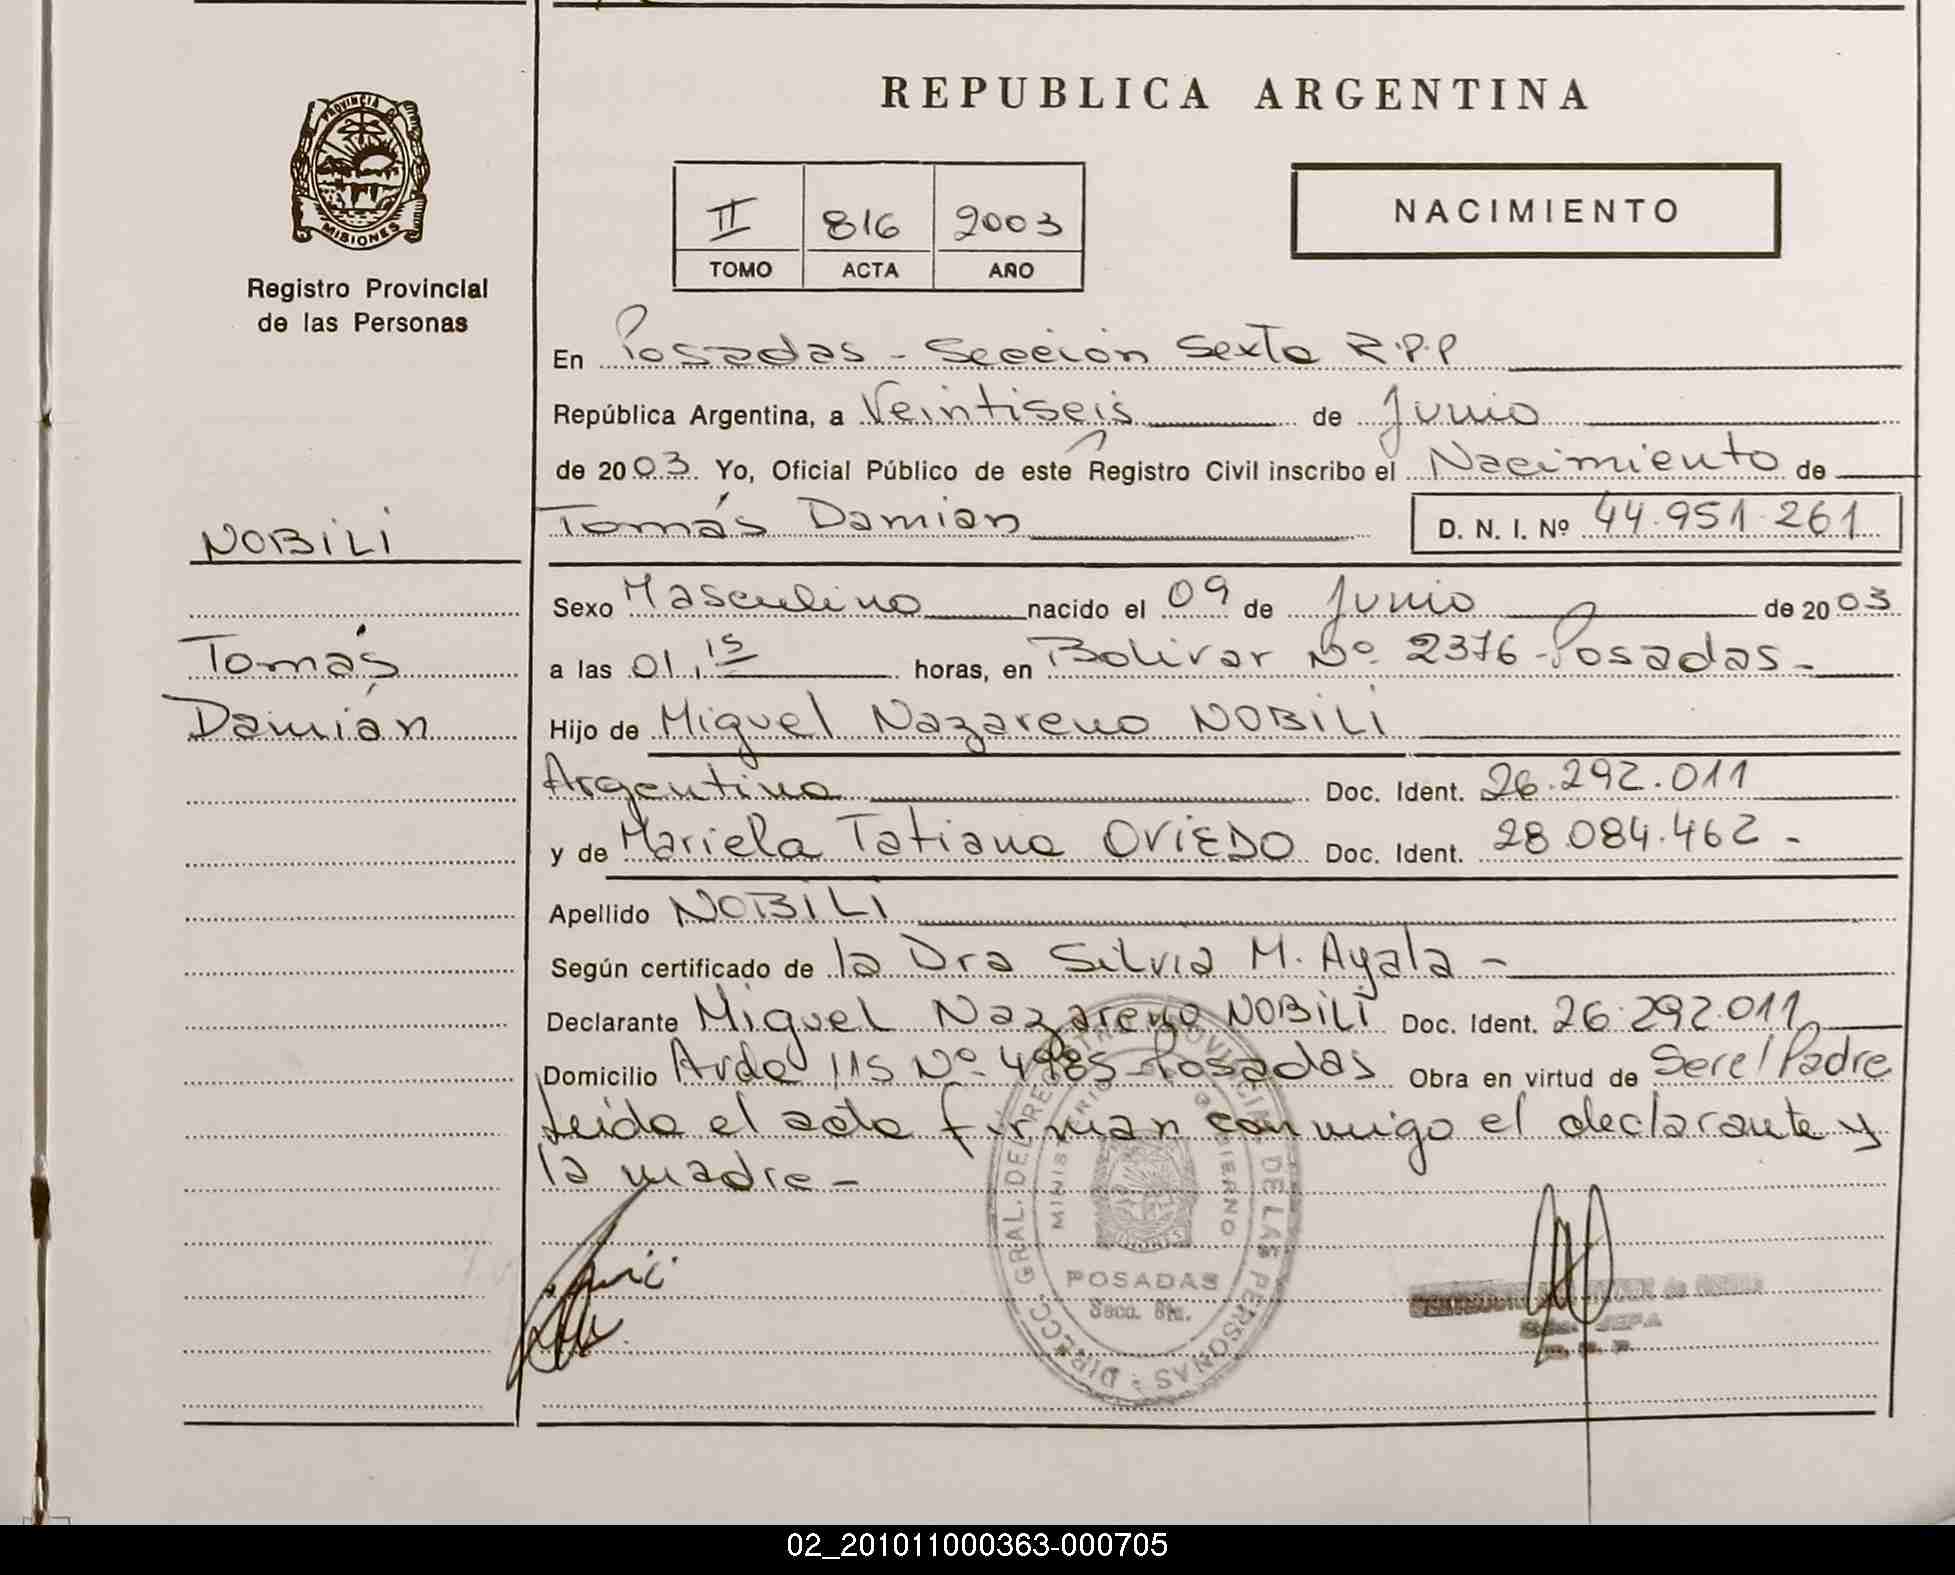 REPUBLICA ARGENTINA
PROVINCIA DE
MISIONES
Registro Provincial
de las Personas
II 816 2003
TOMO ACTA AÑO
NACIMIENTO
En Posadas - Sección Sexta R.P.P
República Argentina, a Veintiseis de Junio
de 2003 Yo, Oficial Público de este Registro Civil inscribo el Nacimiento de
Tomás Damian D. N. I. Nº 44.951.261
NOBILI
Tomás
Damián
Sexo Masculino nacido el 09 de Junio de 2003
a las 01,15 horas, en Bolivar Nº 2376-Posadas-
Hijo de Miguel Nazareno NOBILI
Argentino Doc. Ident. 26.292.011
y de Mariela Tatiana OVIEDO Doc. Ident. 28.084.462 -
Apellido NOBILI
Según certificado de la Dra Silvia M. Ayala -
Declarante Miguel Nazareno NOBILI Doc. Ident. 26.292.011
Domicilio Avda 115 Nº 4985-Posadas Obra en virtud de Ser el Padre
Leída el acta firman conmigo el declarante y
la madre -
DIRECC. GRAL. DEL REGISTRO PROVINCIAL DE LAS PERSONAS
MINISTERIO GOBIERNO
POSADAS
Secc.
02_201011000363-000705